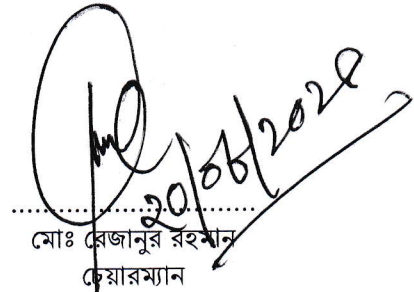 ২০/০৬/২০২৫
মোঃ রেজানুর রহমান
চেয়ারম্যান